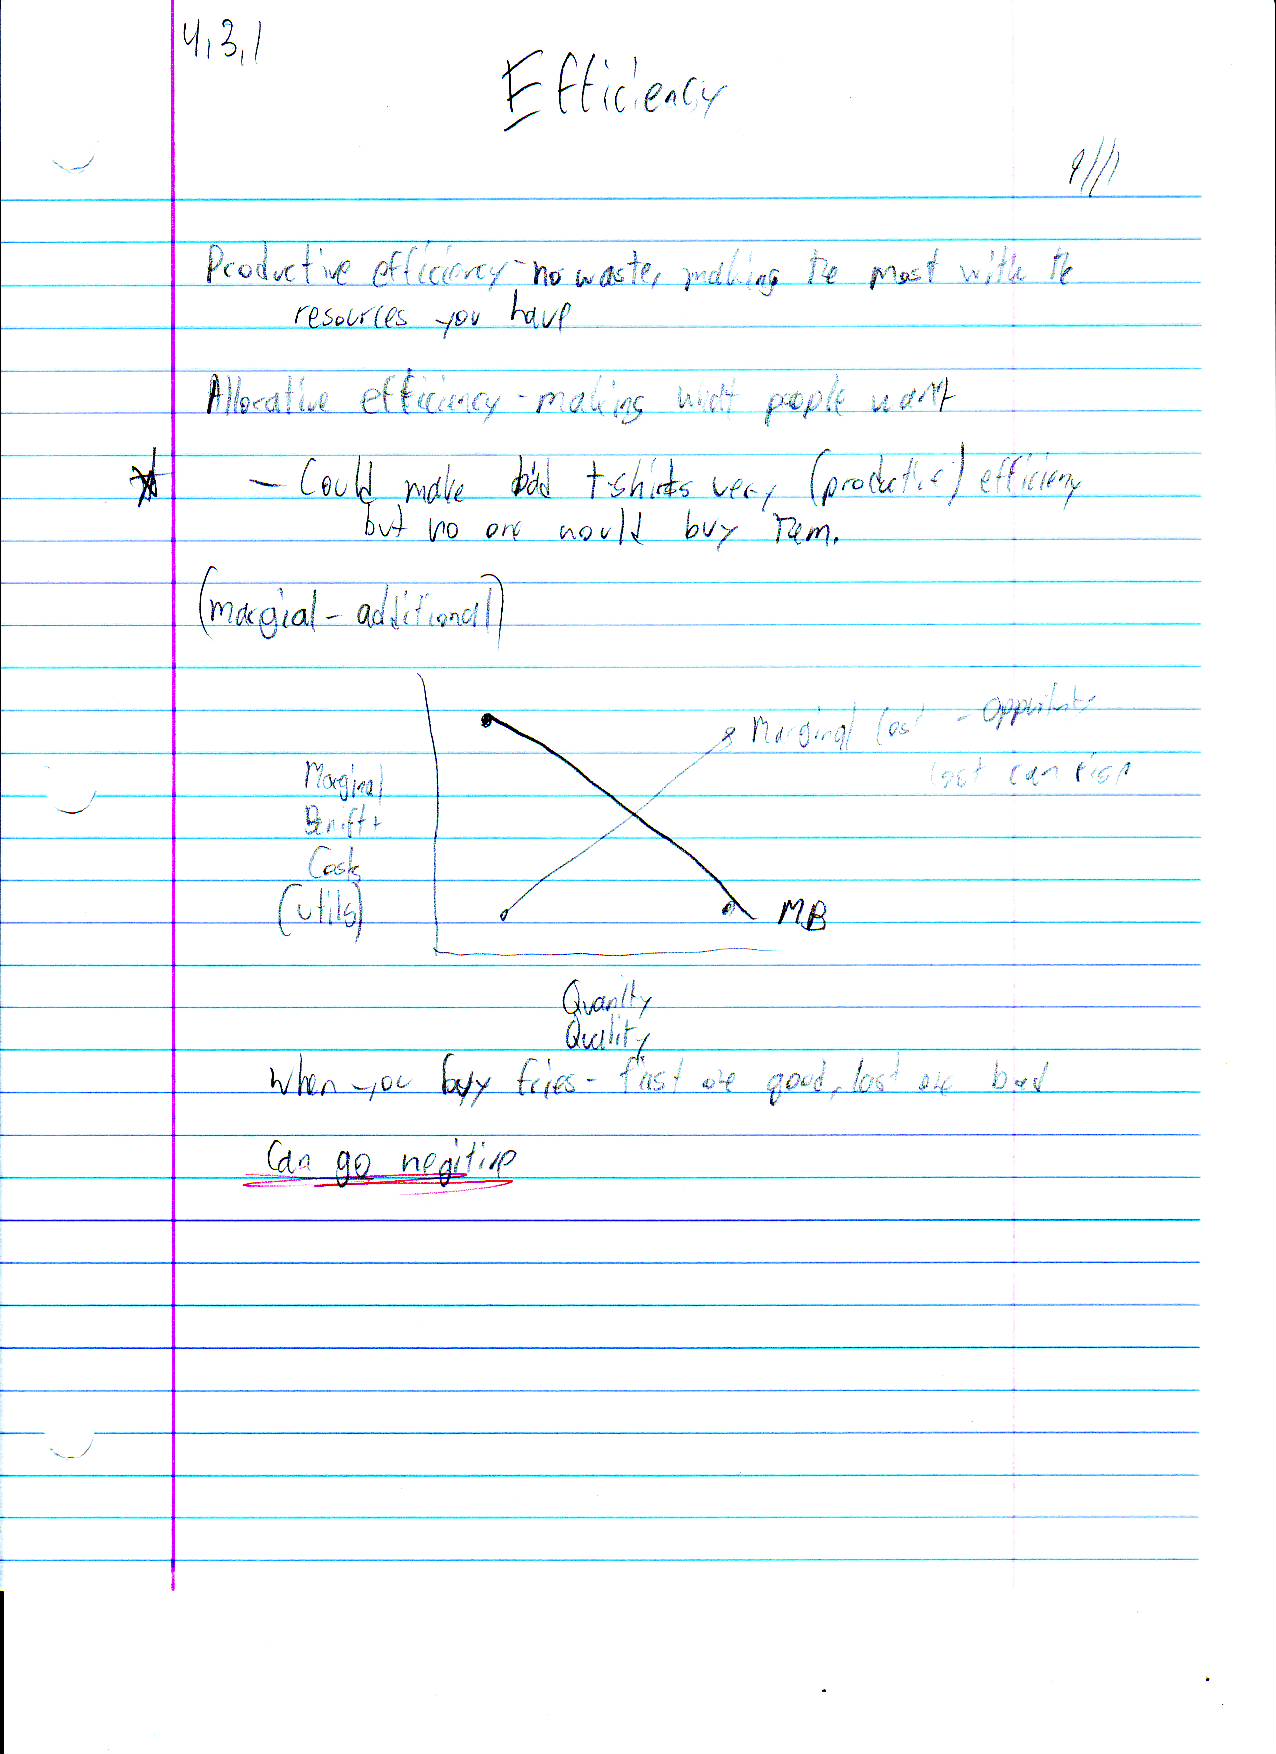 4,3,1
Efficiency
9/11
Productive efficiency - no waste, making the most with the
resources you have
Allocative efficiency - making what people want
- Could make bad t-shirts very (productive) efficieny
but no one would buy them.
(margial - additional)
Marginal Cost - Oppurtunity
cost can rise
Marginal
Benifit +
Costs
(utils)
MB
Quanity
Quality
When you buy fries - first are good, last are bad
Can go negitive